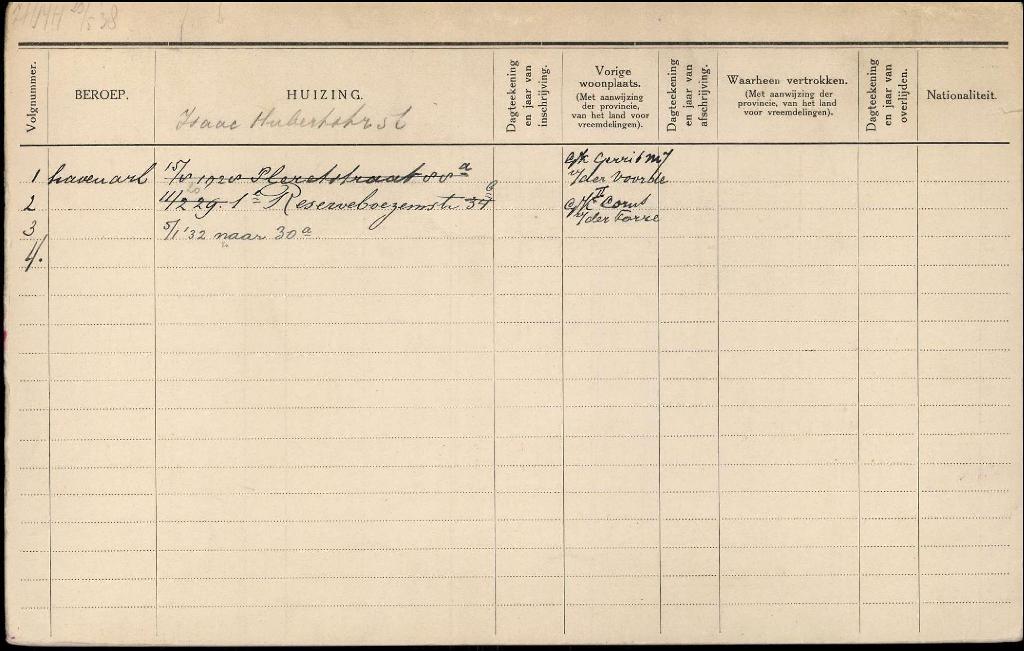 20/5 38
Volgnummer.
BEROEP.
HUIZING.
Isaac Hubertstr st
Dagteekening en jaar van inschrijving.
Vorige woonplaats.
(Met aanwijzing der provincie, van het land voor vreemdelingen).
Dagteekening en jaar van afschrijving.
Waarheen vertrokken.
(Met aanwijzing der provincie, van het land voor vreemdelingen).
Dagteekening en jaar van overlijden.
Nationaliteit.
1 havenarb 88 a Gerrit
v/der Voorde
2 11/2 29. 1e Reserveboezemstr 34 b II Corns
3 5/1 '32 naar 30a v/der
4.